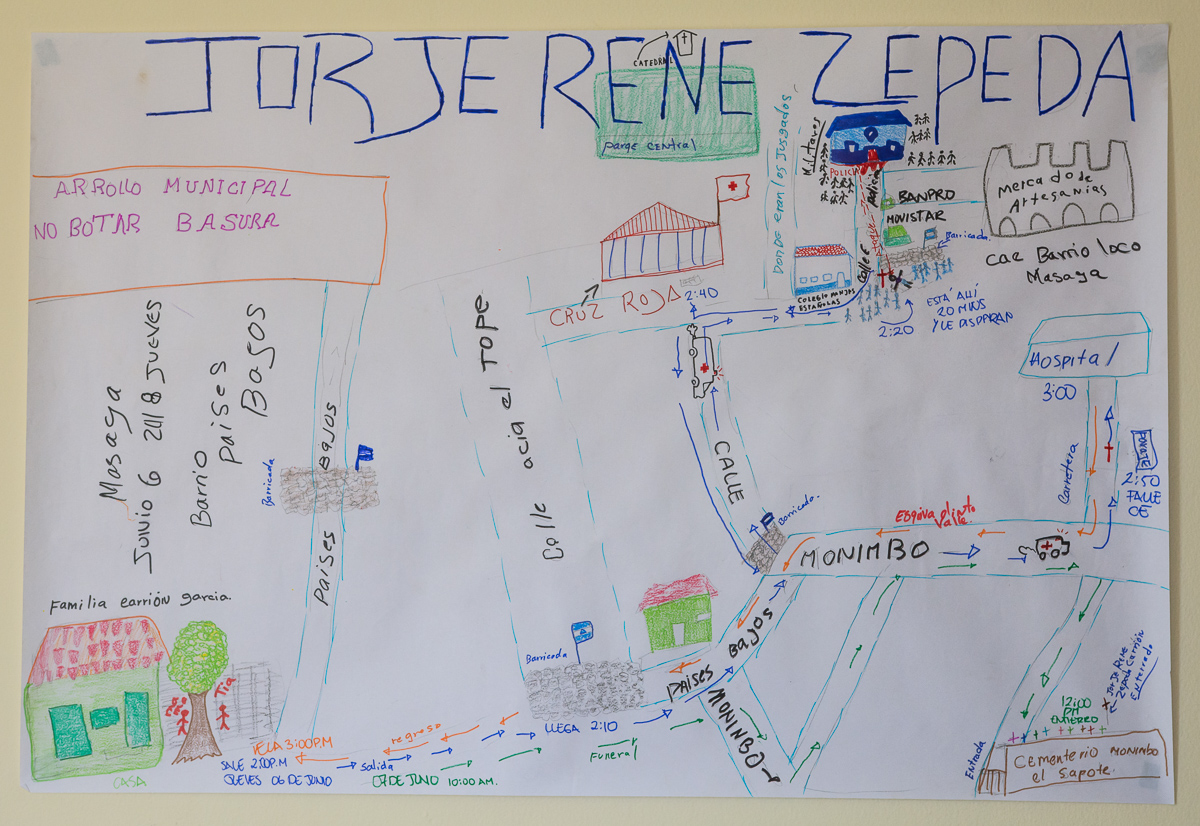 JORJE RENE ZEPEDA
CATEDRAL
parqe CENTRAL
ARROLLO MUNICIPAL
NO BOTAR BASURA
DONDE eran los Jusgados
Militares
POLICIA
Policia
BANPRO
MOVISTAR
Barricada.
Mercado de
Artesanias
cae Barrio loco
Masaya
COLEGIO MONJAS
ESPAÑOLAS
CALLE
2:20
ESTÁ ALLI
20 MINS
Y LE DISPARAN
CRUZ ROJA
2:40
HOSPITAL
3:00
Masaya
JUNIO 6 2018 JUEVES
Barrio
paises
Bajos
Barricada
PAISES BAJOS
Calle acia el TOPE
CALLE
Barricada.
Carretera
2:50
FALLE
CE
Esquiva
Valle.
MONIMBO
Familia carrión garcia.
Tia
CASA
Barricada
PAISES BAJOS
MONINBO
LLEGA 2:10
regreso
VELA 3:00 P.M
SALE 2:00 P.M
JUEVES 06 DE JUNIO
salida
07 DE JUNIO 10:00 AM.
Funeral
12:00
PM
ENTIERRO
Jorje Rene
Zepeda Carrión
ENTERRADO
Entrada
Cementerio MONIMBO
el Sapote.